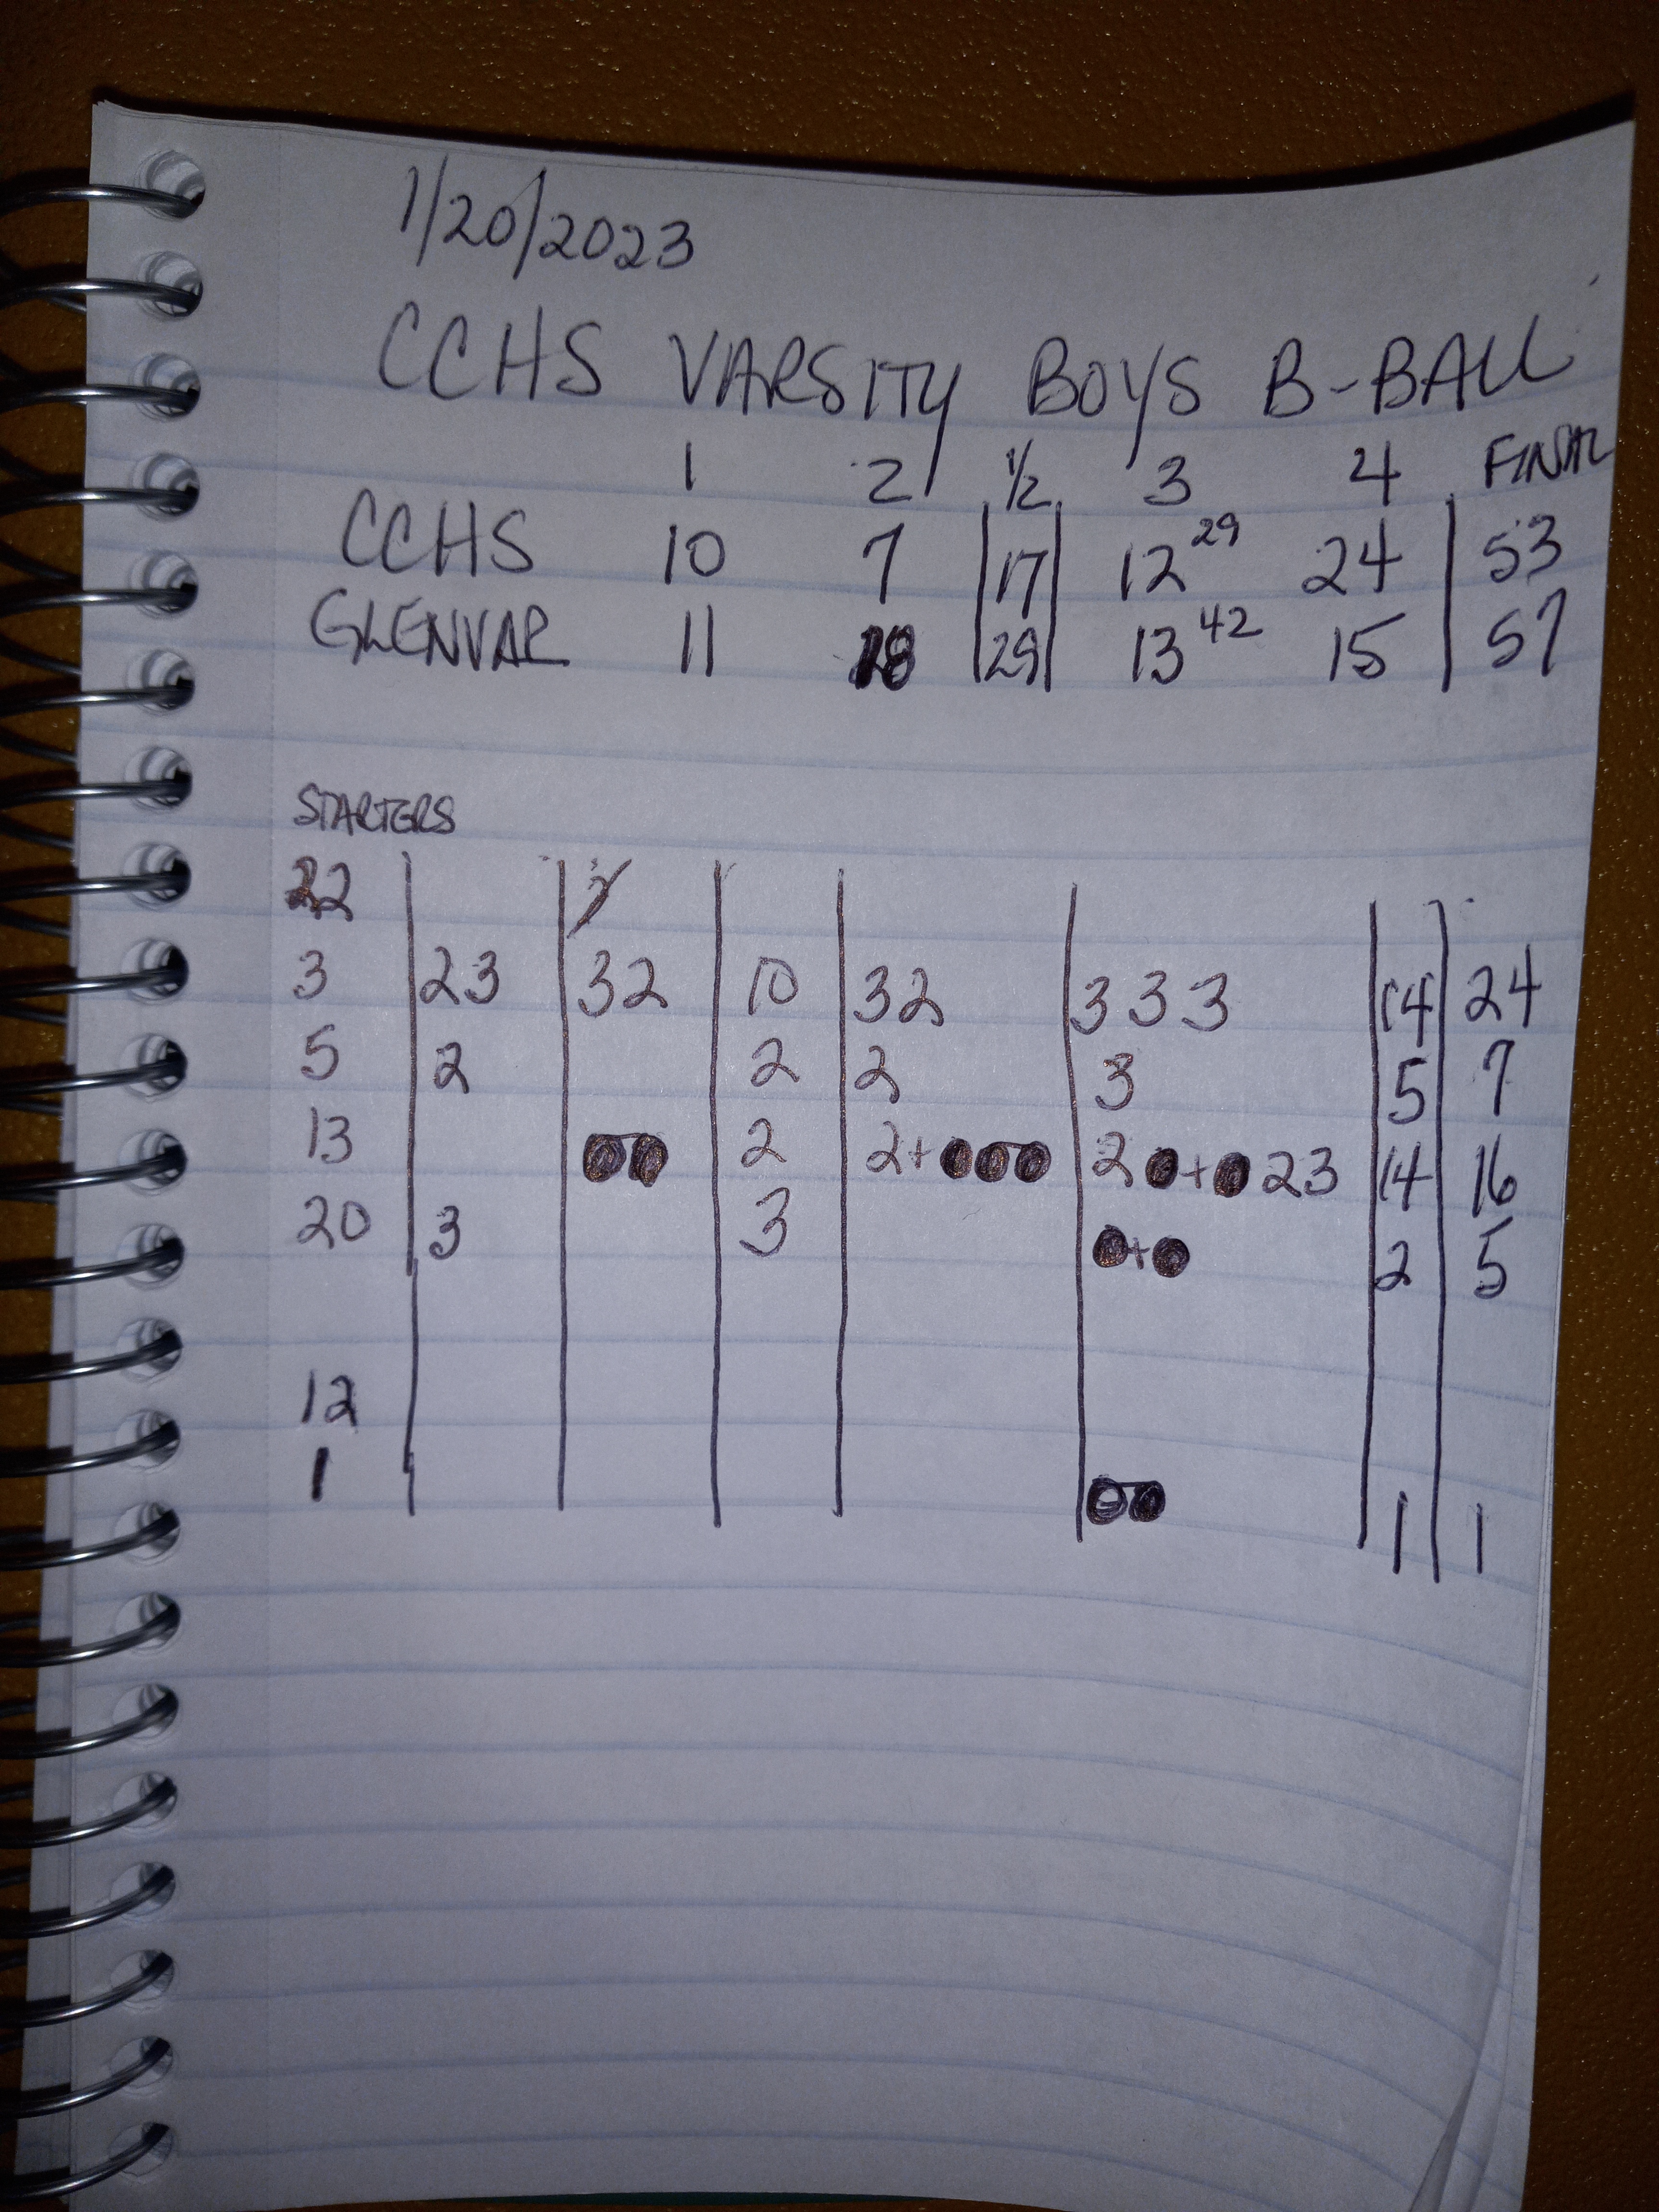 1/20/2023
CCHS VARSITY BOYS B-BALL
1 2 1/2 3 4 FINAL
CCHS 10 7 17 12 29 24 53
GLENVAR 11 18 29 13 42 15 57
STARTERS
22
3 23 32 10 32 333 14 24
5 2 2 2 3 5 7
13 2 2+ 2 + 23 14 16
20 3 3 + 2 5
12
1 1 1